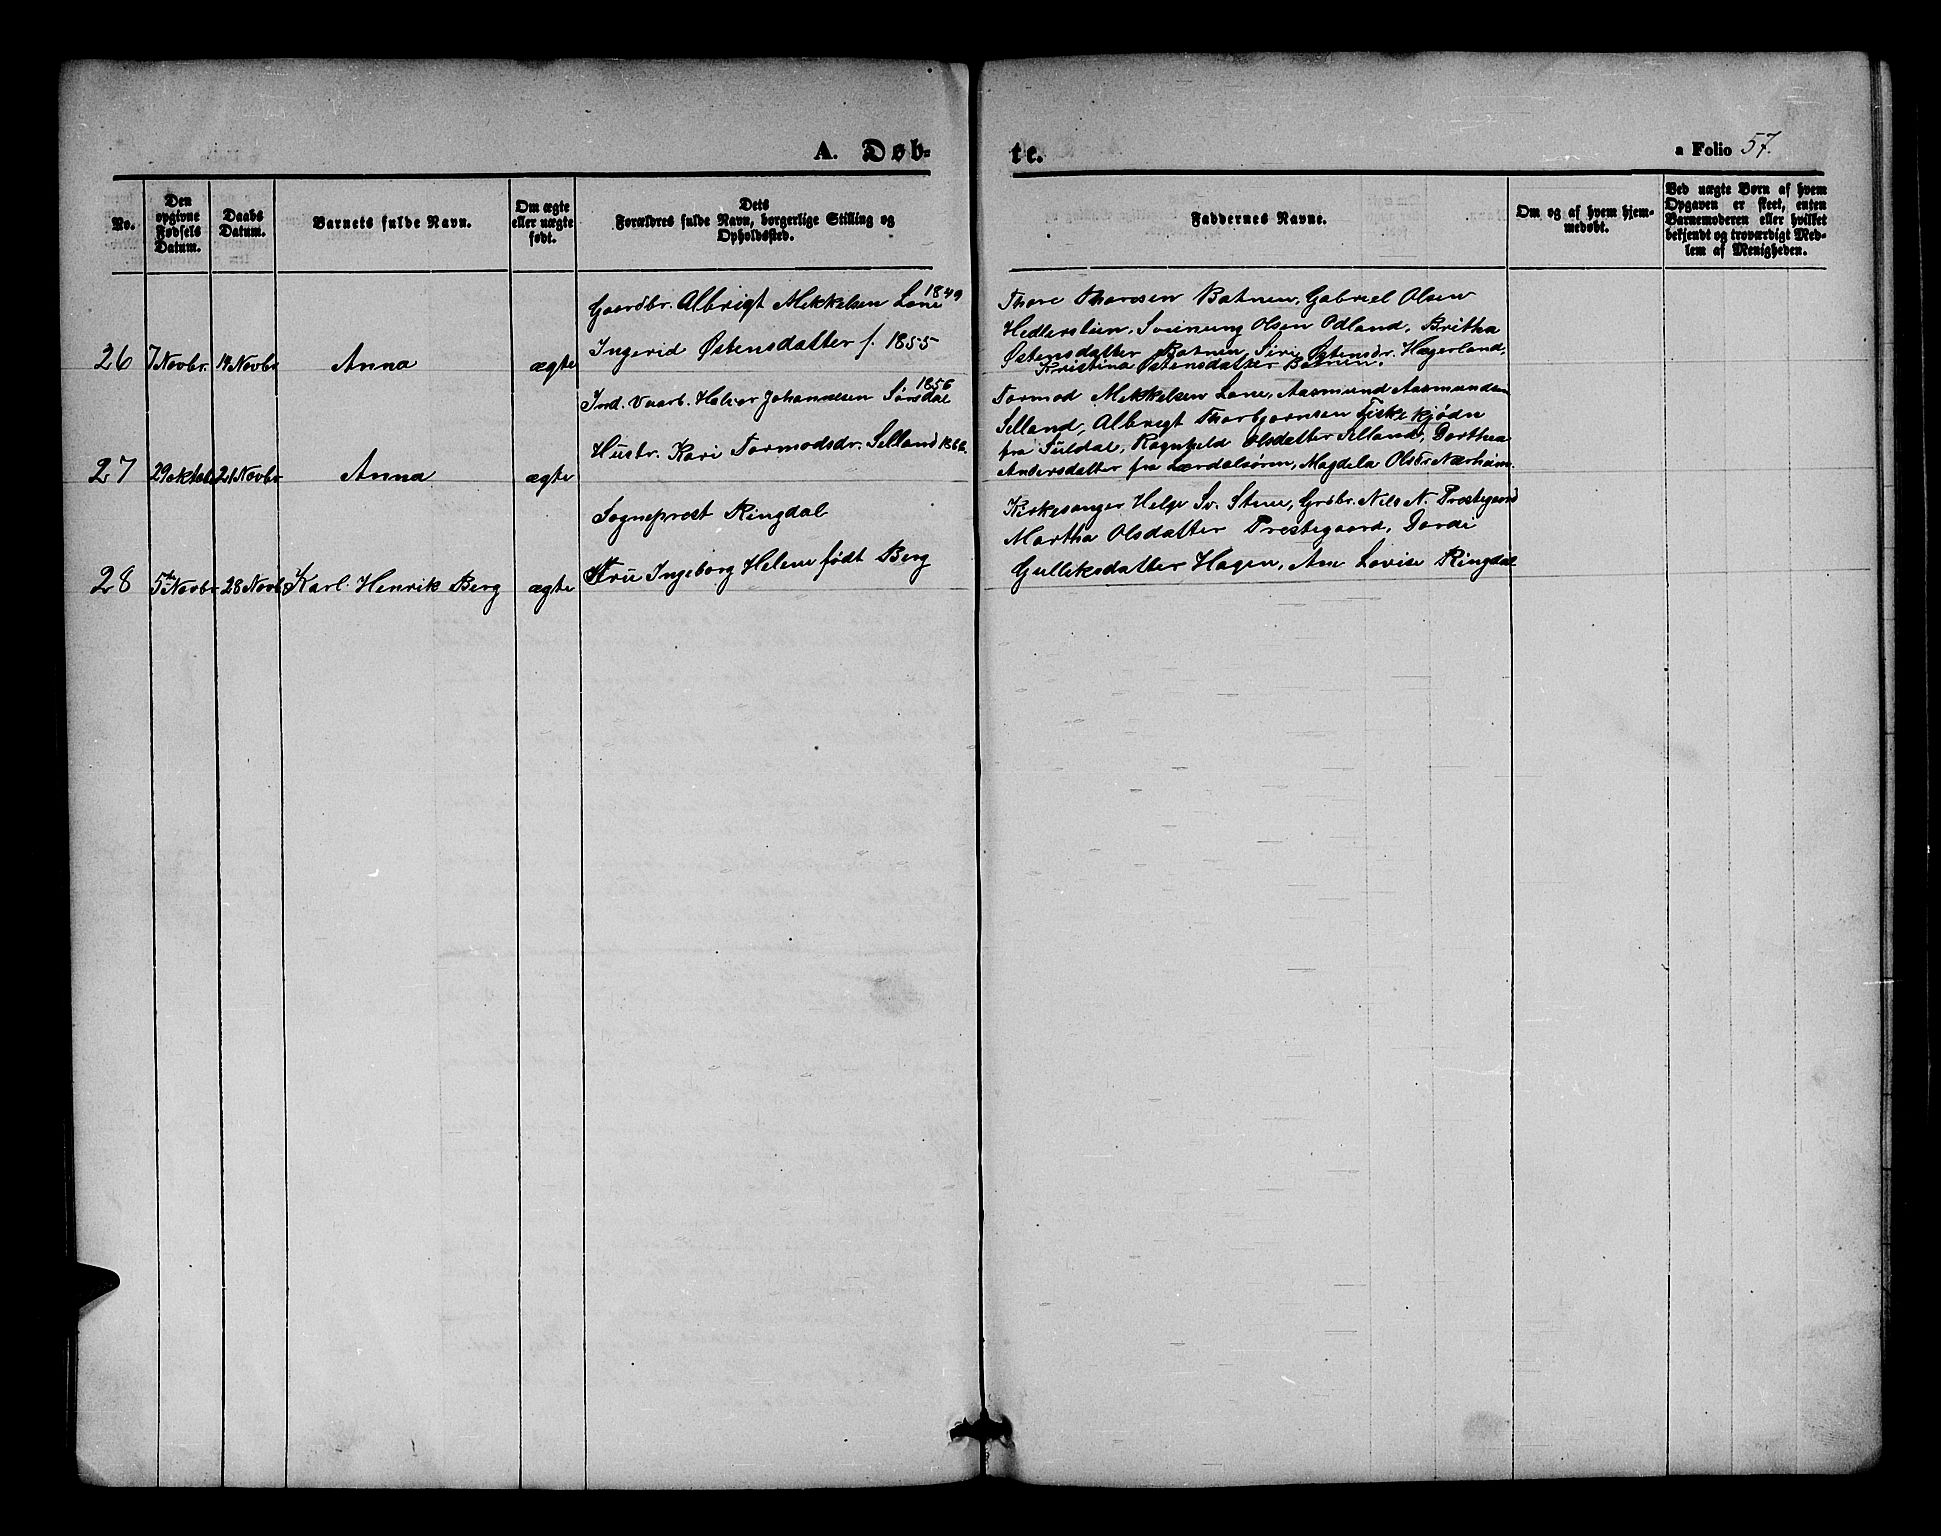 A. Døb-
te.
a Folio 57.
No.
Den opgivne Fødsels Datum.
Daabs Datum.
Barnets fulde Navn.
Om ægte eller uægte født.
Dets Forældres fulde Navn, borgerlige Stilling og Opholdssted.
Faddernes Navne.
Om og af hvem hjemmedøbt.
Ved uægte Børn af hvem Opgaven er skeet, enten Barnemoderen eller hvilket bekjendt og troværdigt Medlem af Menigheden.
Gaardbr. Albrigt Mekkelsen Lone 1849
Ingerid Østensdatter f. 1855
26 7 Novbr. 14 Novbr Anna ægte
Thore Thoresen Batnen, Gabriel Olsen
Hedlerstein, Sveinung Olsen Odland, Britha
Østensdatter Batnen, Siri Østensdr. Hægerland,
Kristina Østensdatter Batnen.
Ind. Vaarb. Halvor Johannesen Sørsdal 1856
Hustr. Kari Tormodsdr. Selland 1860.
27 29 oktob 21 Novbr Anna ægte
Tormod Mekkelsen Lone, Aasmund Aasmundsen
Selland, Albrigt Thorbjørnsen Fiskekjødn
fra Suldal, Ragnheld Olsdatter Selland, Dorthea
Andersdatter fra Lærdalsøren, Magdela Olsdr Nærheim.
Sogneprest Ringdal
Fru Ingeborg Helene født Berg
28 5te Novbr 28 Novb. Karl Henrik Berg ægte
Kirkesanger Helge Sv. Stene, Grdbr. Nils N. Prestegaard
Martha Olsdatter Prestegaard, Dordi
Gulleksdatter Hagen, Ane Lovise Ringdal